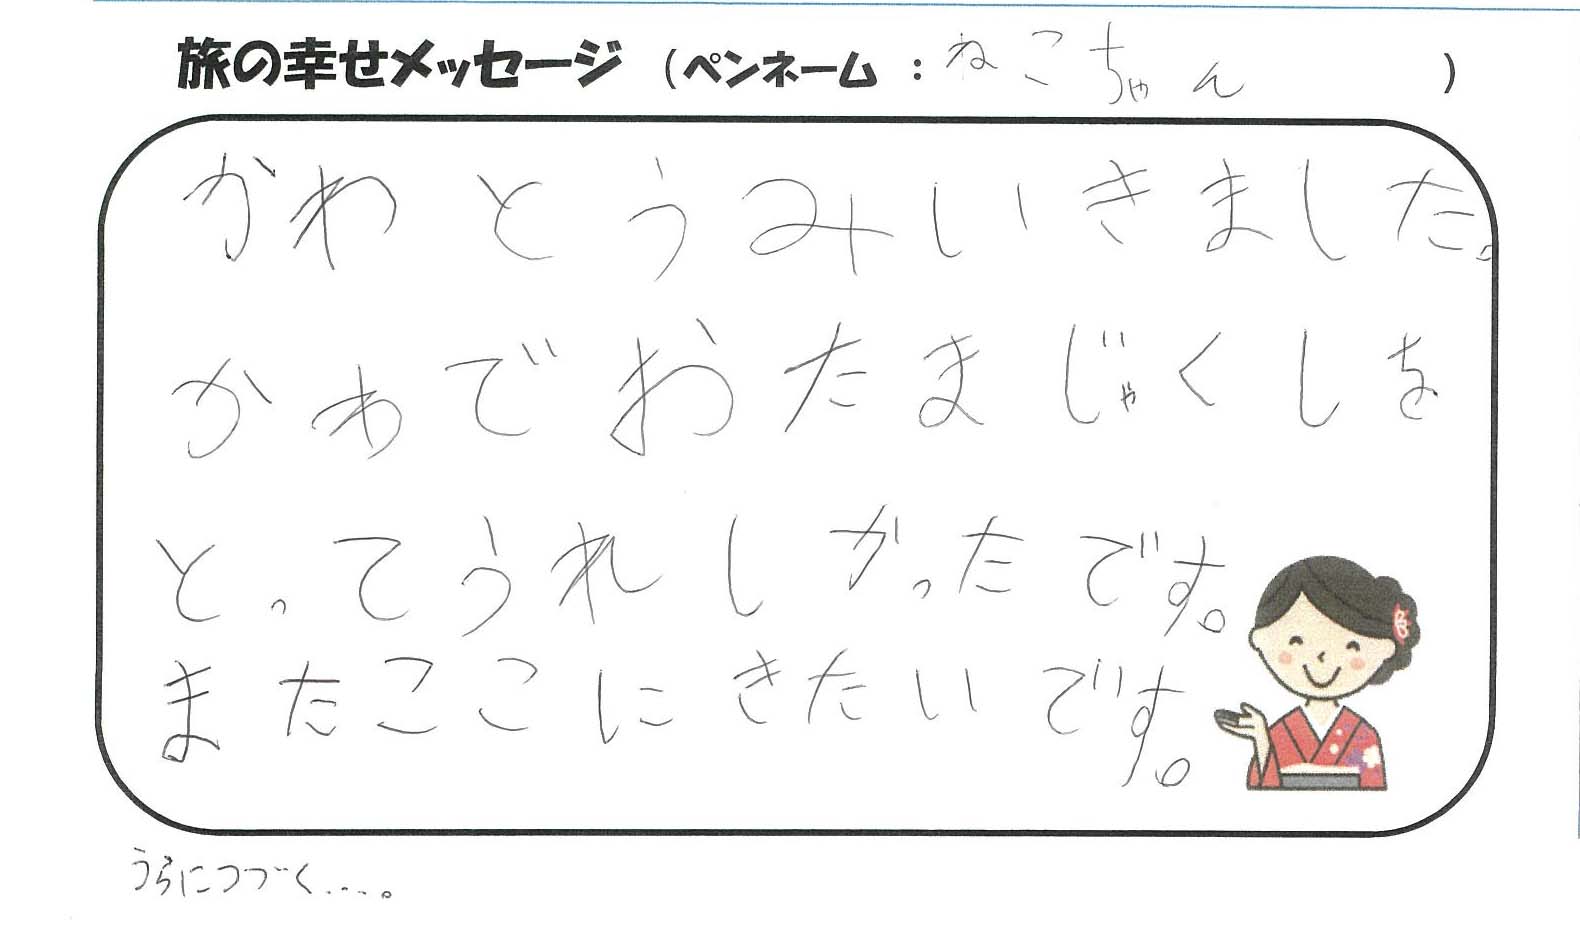 旅の幸せメッセージ （ペンネーム ： ねこちゃん ）
かわとうみいきました。
かわでおたまじゃくしを
とってうれしかったです。
またここにきたいです。
うらにつづく....。